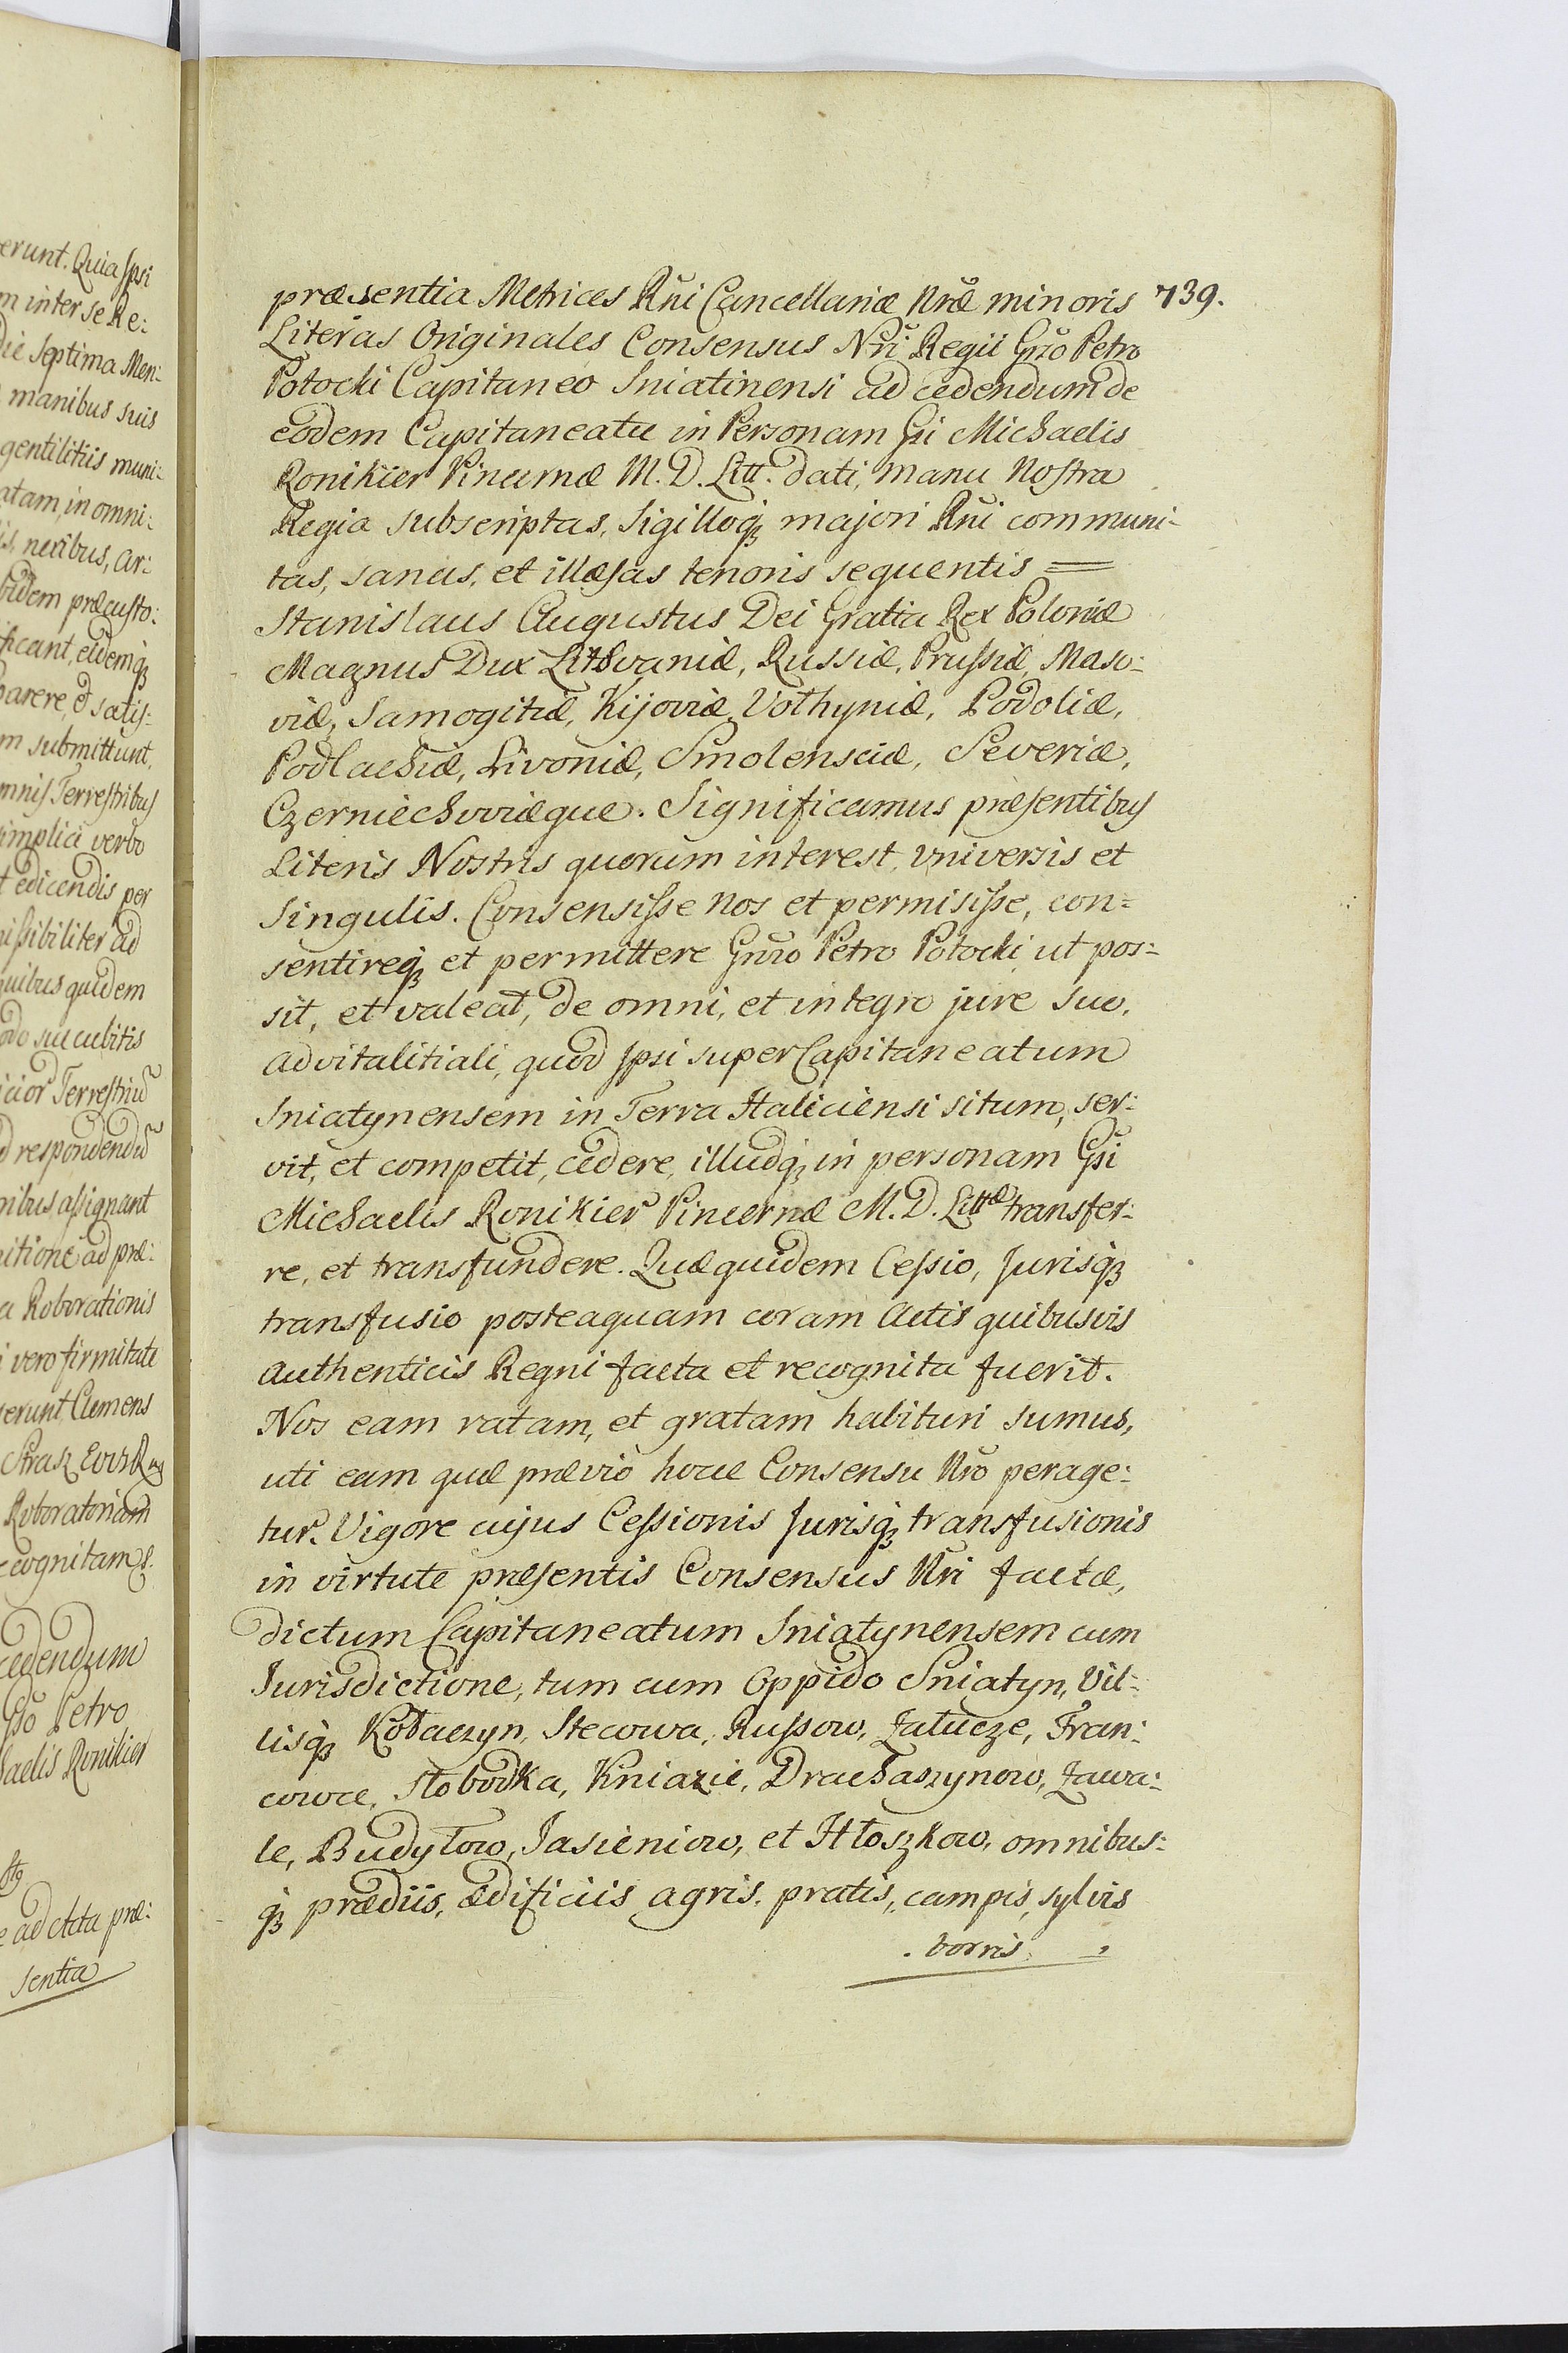 erunt. Quia Ipsi
m inter se Re:
Die Septima Men:
manibus suis
gentilitiis muni:
atam, in omni:
is, nexibus, ar:
ibidem præcusto:
ficant, eidemqꝫ
parere, et satis:
m submittunt,
omnis Terrestribus
simplici verbo
t edicendis per
missibiliter ad
quibus quidem
odo succubitis
icior Terrestriũ
d respondendũ
nibus assignant
nitione ad præ:
a Roborationis
i vero firmitate
serunt, Clemens
Strasz
Roboratoriam
ecognitam
cedendum
Gso Petro
haelis Ronikier
e ad Acta præ:
sentia
præsentia Metrices Rñi Cancellariæ Nræ minoris 739.
Literas Originales Consensus Nri Regii Gnzo Petro
Potocki Capitaneo Sniatinensi ad cedendum de
eodem Capitaneatu in Personam Gsi Michaelis
Ronikier Pincernæ M. D. Litt. dati, manu Nostra
Regia subscriptas, Sigilloqꝫ majori Rñi communi-
tas, sanas, et illæsas tenoris sequentis =
Stanislaus Augustus Dei Gratia Rex Poloniæ
Magnus Dux Lithvaniæ, Russiæ, Prussiæ, Maso:
viæ, Samogitiæ, Kijoviæ, Volhyniæ, Podoliæ,
Podlachiæ, Livoniæ, Smolensciæ, Severiæ,
Czerniechoviæque. Significamus præsentibus
Literis Nostris quorum interest, Universis et
Singulis. Consensisse Nos et permisisse, con=
sentireqꝫ et permittere Gnzo Petro Potocki, ut pos:
sit, et valeat, de omni, et integro jure suo,
advitalitiali, quod Ipsi super Capitaneatum
Sniatynensem in Terra Haliciensi situm, ser:
vit, et competit, cedere, illudqꝫ in personam Gsi
Michaelis Ronikier Pincernæ M. D. Littæ transfer:
re, et transfundere. Quæ quidem Cessio, Jurisqꝫ
transfusio posteaquam coram Actis quibusvis
authenticis Regni facta et recognita fuerit.
Nos eam ratam, et gratam habituri sumus,
uti eam quæ prævio hocce Consensu Nro perage:
tur. Vigore cujus Cessionis Jurisqꝫ transfusionis
in virtute præsentis Consensus Nri factæ,
dictum Capitaneatum Sniatynensem cum
Jurisdictione, tum cum Oppido Sniatyn, Vil:
lisqꝫ Kołaczyn, Stecowa, Russow, Załucze, Fran:
cowce, Słobodka, Kniazie, Drachaszynow, Zawa:
le, Budyłow, Jasieniow, et Hłoszkow, omnibus:
qꝫ prædiis, ædificiis agris, pratis, campis, sylvis
borris